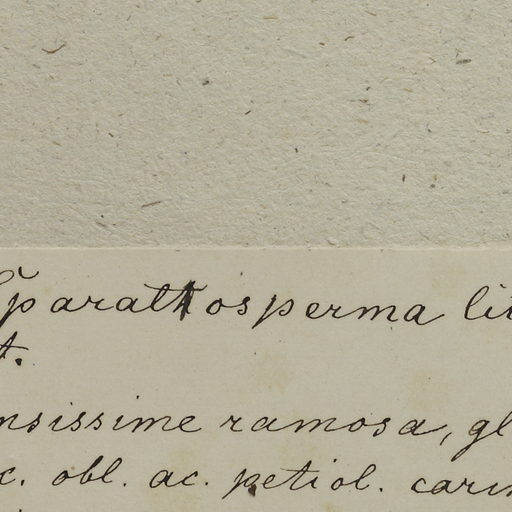 Sparattosperma lit
t.
nsissime ramosa, gl
c. obl. ac. petiol. carin